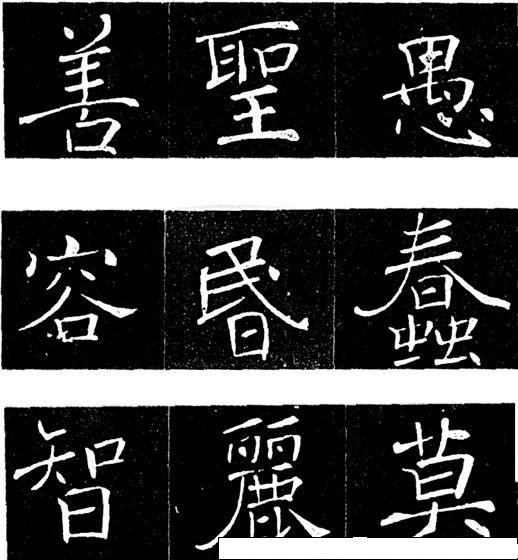 善聖愚
容昬蠢
智麗莫